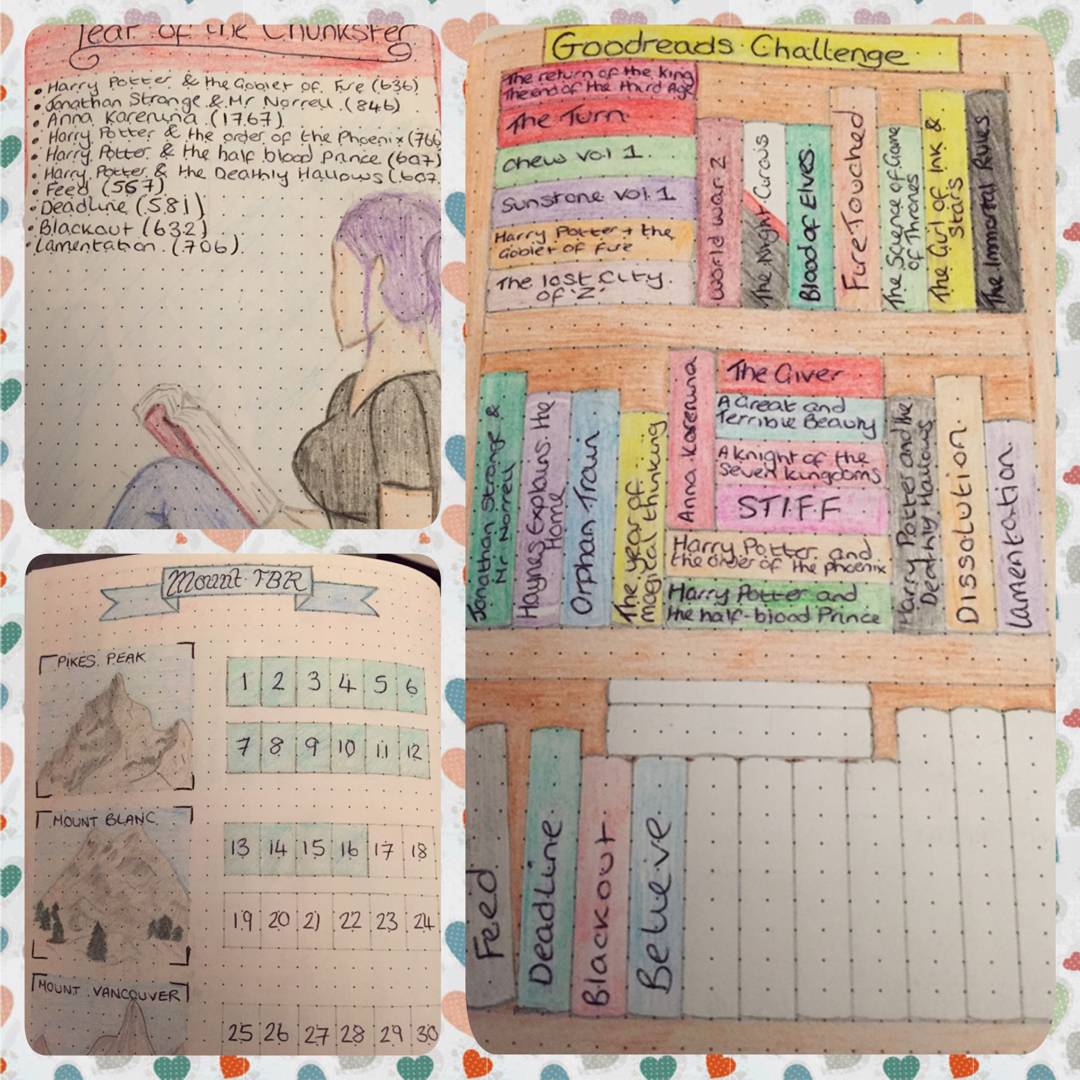 Year of the Chunkster
• Harry Potter & the Goblet of Fire (636)
• Jonathan Strange & Mr Norrell (846)
• Anna Karenina (1767)
• Harry Potter & the order of the Phoenix (766
• Harry Potter & the half blood Prince (607)
• Harry Potter & the Deathly Hallows (607
• Feed (567)
• Deadline (581)
• Blackout (632)
• Lamentation (706)
Mount TBR
PIKES PEAK
1 2 3 4 5 6
7 8 9 10 11 12
MOUNT BLANC
13 14 15 16 17 18
19 20 21 22 23 24
MOUNT VANCOUVER
25 26 27 28 29 30
Goodreads Challenge
The return of the King
The end of the third Age
The Turn
Chew Vol 1.
Sunstone Vol 1
Harry Potter + the
Goblet of Fire
The lost City
of 'Z'
World War Z
The Night Circus
Blood of Elves
Fire Touched
The Science of Game
of Thrones
The Girl of Ink &
Stars
The Immortal Rules
Jonathan Strange &
Mr Norrell
Haynes Explains the
Home
Orphan Train
The year of
magical thinking
Anna Karenina
The Giver
A Great and
Terrible Beauty
A Knight of the
Seven Kingdoms
STIFF
Harry Potter and
the order of the phoenix
Harry Potter and
the half-blood Prince
Harry Potter and the
Deathly Hallows
Dissolution
Lamentation
Feed
Deadline
Blackout
Believe